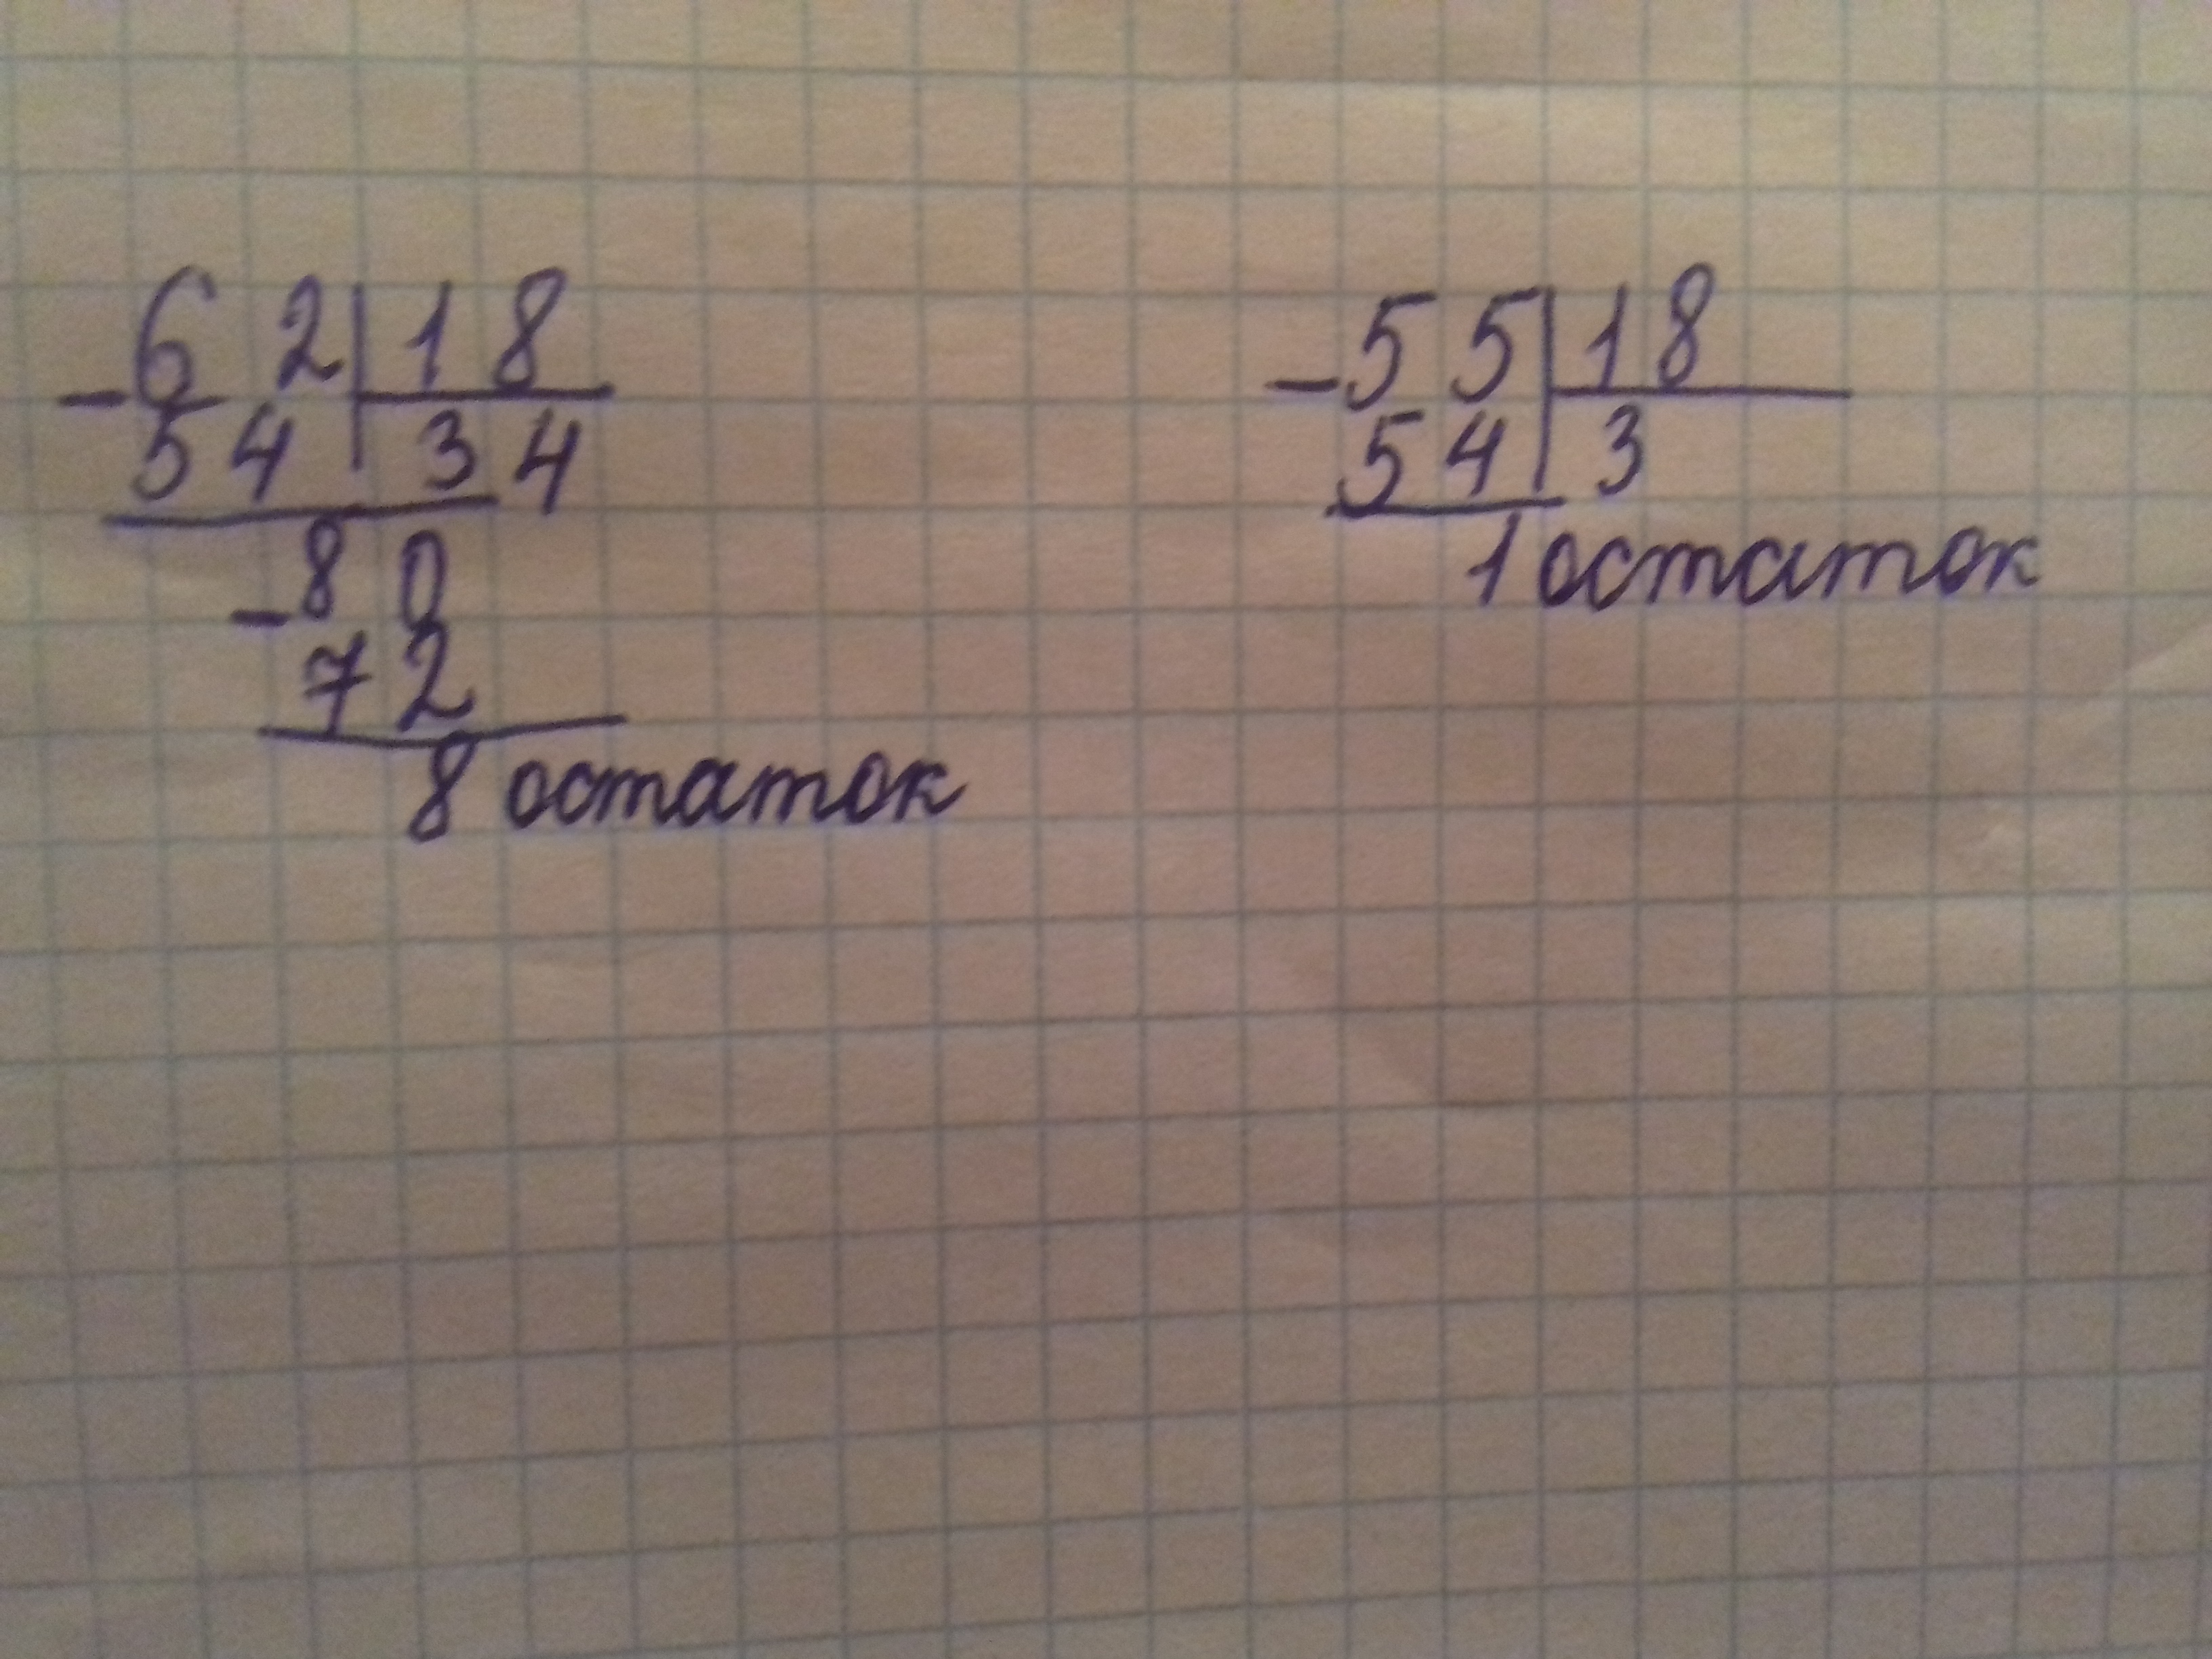 - 6 2 | 1 8
5 4 | 3 4
- 8 0
7 2
8 остаток
- 5 5 | 1 8
5 4 | 3
1 остаток